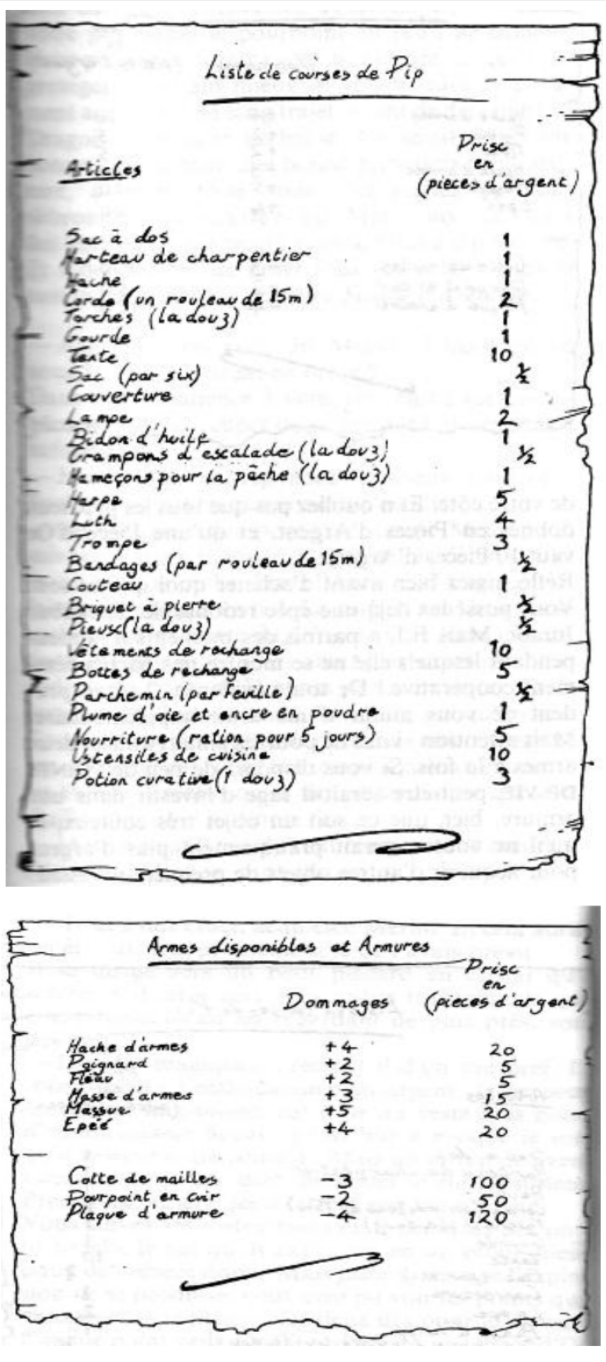 Liste de courses de Pip
Articles
Prix
en
(pièces d'argent)
Sac à dos 1
Marteau de charpentier 1
Hache 1
Corde (un rouleau de 15m) 2
Torches (la douz) 1
Gourde 1
Tente 10
Sac (par six) ½
Couverture 1
Lampe 2
Bidon d'huile 1
Crampons d'escalade (la douz) ½
Hameçons pour la pâche (la douz) 1
Harpe 5
Luth 4
Trompe 3
Bandages (par rouleau de 15m) ½
Couteau 1
Briquet à pierre ½
Pieux (la douz) ½
Vêtements de rechange 10
Bottes de rechange 5
Parchemin (par feuille) ½
Plume d'oie et encre en poudre 1
Nourriture (ration pour 5 jours) 5
Ustensiles de cuisine 10
Potion curative (1 douz) 3
Armes disponibles et Armures
Prix
en
Dommages (pièces d'argent)
Hache d'armes +4 20
Poignard +2 5
Fléau +2 5
Masse d'armes +3 15
Massue +5 20
Epéé +4 20
Cotte de mailles -3 100
Pourpoint en cuir -2 50
Plaque d'armure -4 120